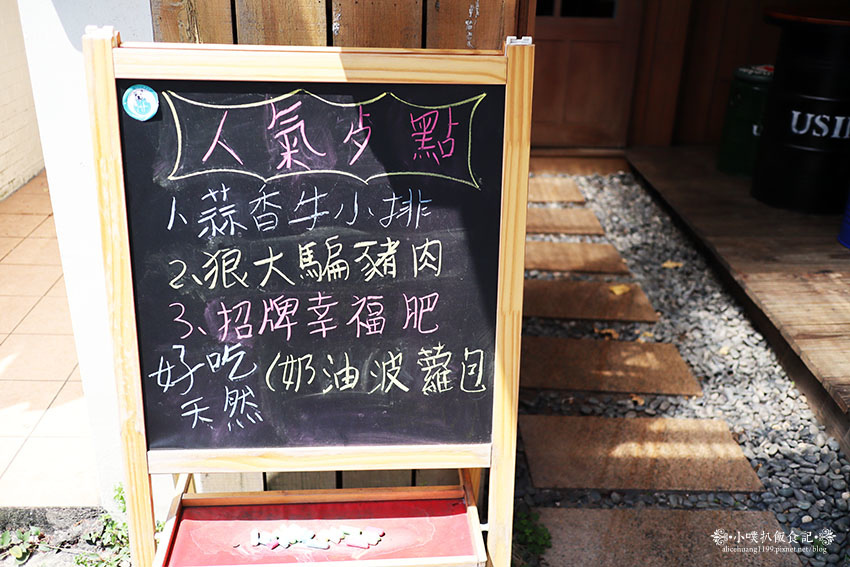 人氣必點
1、蒜香牛小排
2、狠大騙豬肉
3、招牌幸福肥
好吃(奶油波蘿包
天然
USIF
小噗趴飯食記
alicehuang1199.pixnet.net/blog